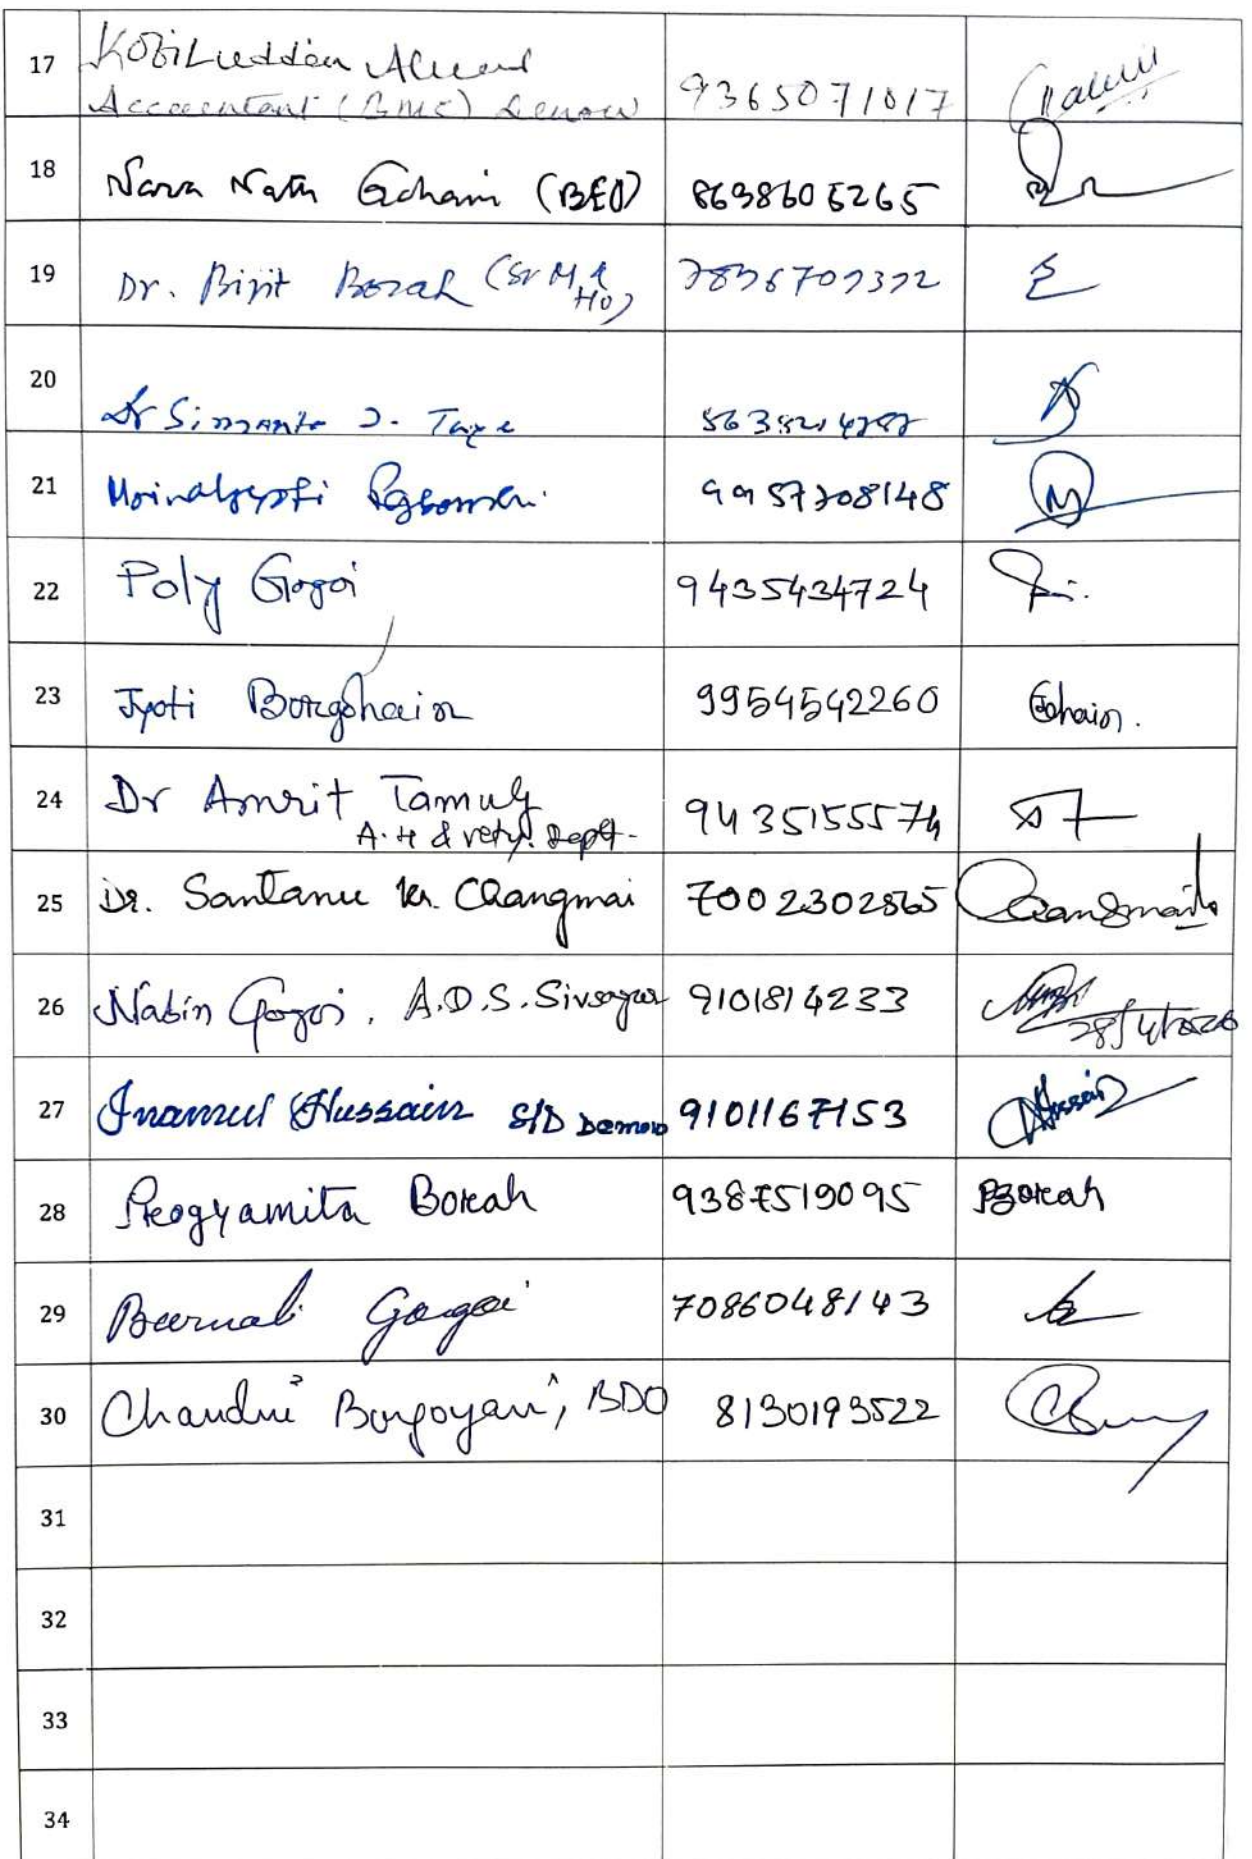 17 Kobiluddin Ahmed
Accountant (BMC) Demow 9365071017
18 Nava Nath Gohain (BEO) 8638605265
19 Dr. Bipit Borah (Sr M &
HO)
20 Dr Simanta J.
21
22 Poly Gogoi 9435434724
23 Jyoti Borgohain 9954542260 Gohain.
24 Dr Amrit Tamuly 9435155574
A.H & vety. Dept.
25 Dr. Santanu Kr. Changmai 7002302865 Changmai
26 Nabin Gogoi, A.D.S. Sivsagar 9101814233
27 Inamul Hussain S/D Demow 9101167153 Hussain
28 Progyamita Borah 9387519095 PBorah
29 Barnali Gogoi 7086048143
30 Chandni Borgoyari, BDO 8130193522
31
32
33
34